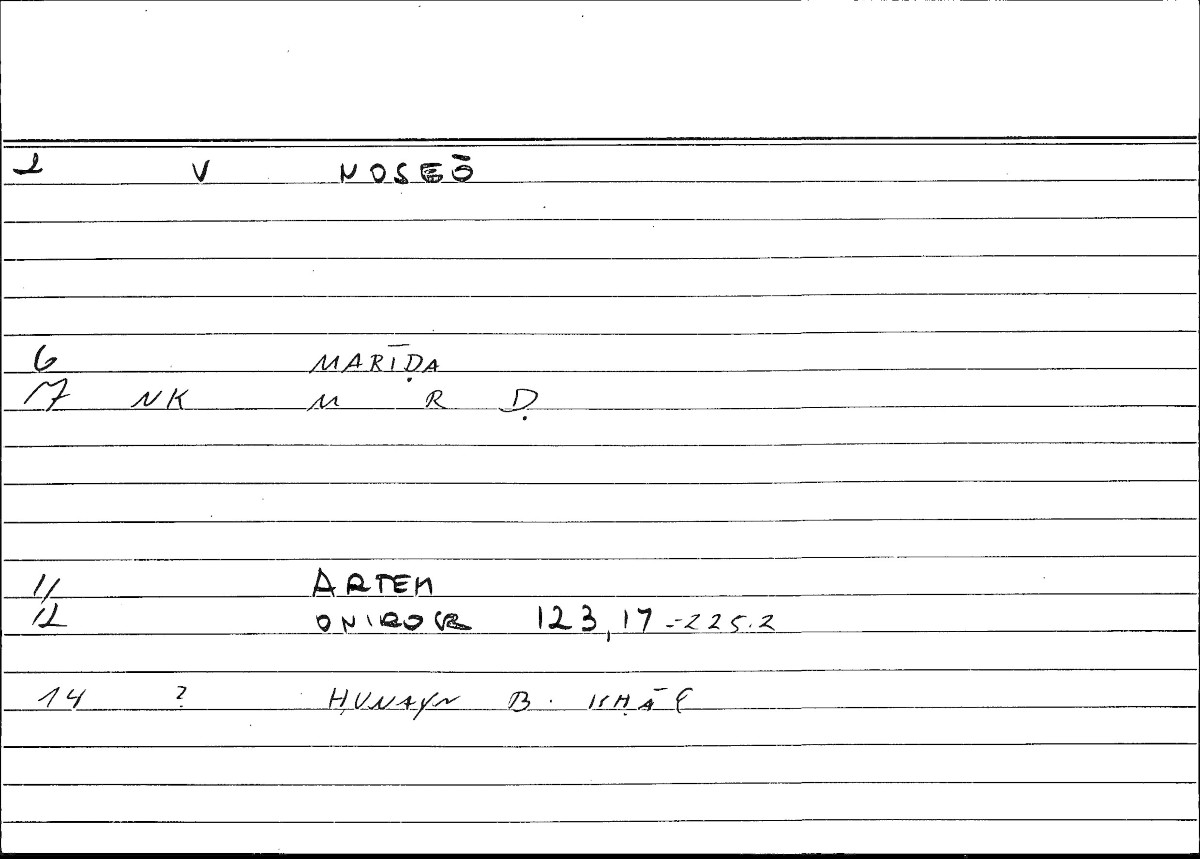 2 V NOSEŌ
6 MARĪḌA
7 NK M R Ḍ
11 ARTEM
12 ONIROCR 123,17 = 225.2
14 ? ḤUNAYN B. ISḤĀQ